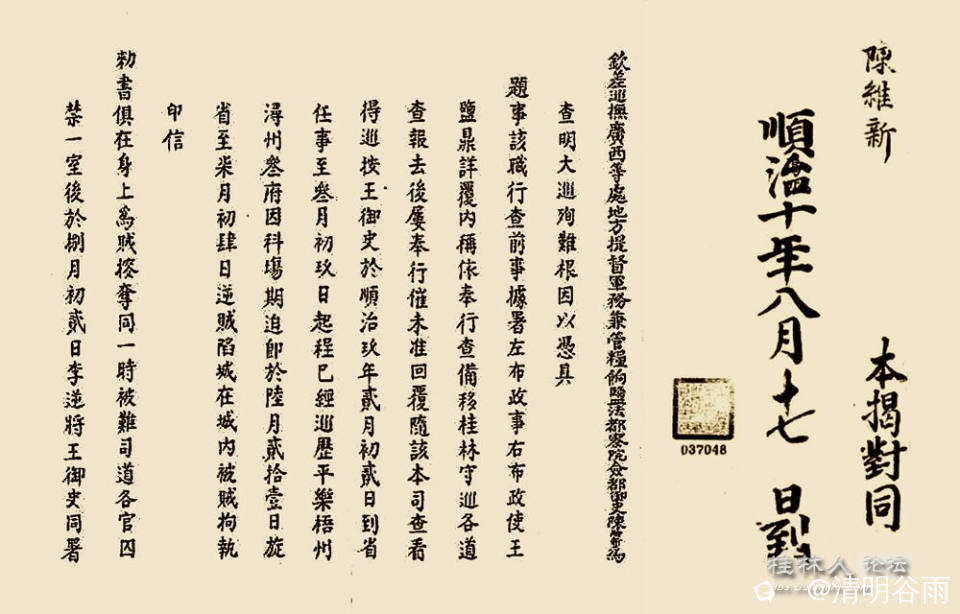 陳維新
本揭對同
順治十年八月十七日到
037048
欽差巡撫廣西等處地方提督軍務兼管糧餉鹽法都察院僉都御史陳 為
查明大巡殉難根因以憑具
題事該職行查前事據署左布政事右布政使王
鹽鼎詳覆內稱依奉行查備移桂林守巡各道
查報去後屢奉行催未准回覆隨該本司查看
得巡按王御史於順治玖年貳月初貳日到省
任事至叁月初玖日起程已經巡歷平樂梧州
潯州叁府因科場期迫卽於陸月貳拾壹日旋
省至柒月初肆日逆賊陷城在城內被賊拘執
印信
勅書俱在身上爲賊搜奪同一時被難司道各官囚
禁一室後於捌月初貳日李逆將王御史同署
桂林人论坛
@清明谷雨